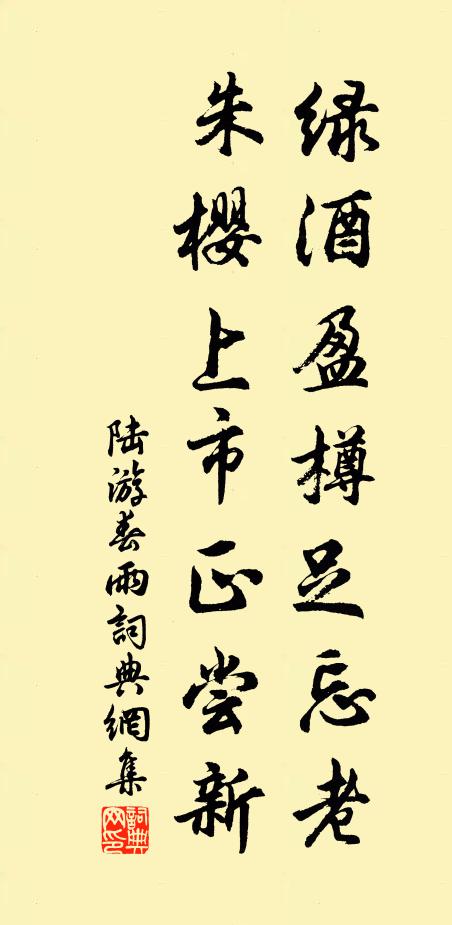 绿酒盈樽足忘老
朱樱上市正尝新
陆游春雨詞典網集
詞典網印